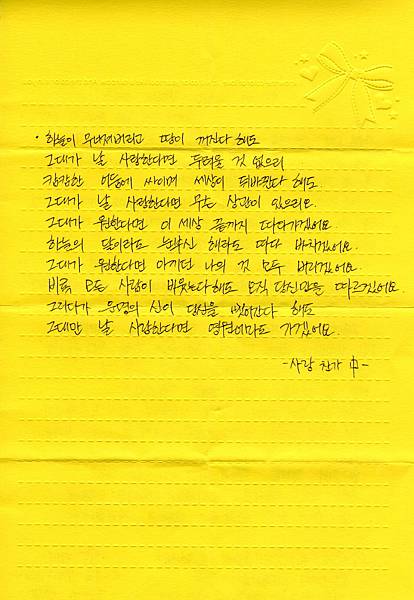 · 하늘이 무너져버리고 땅이 꺼진다 해도
그대가 날 사랑한다면 두려울 것 없으리
캄캄한 어둠에 싸이며 세상이 뒤바뀐다 해도
그대가 날 사랑한다면 무슨 상관이 있으리오.
그대가 원한다면 이 세상 끝까지 따라가겠어요
하늘의 달이라도 눈부신 해라도 따다 바치겠어요.
그대가 원한다면 아끼던 나의 것 모두 버리겠어요.
비록 모든 사람이 비웃는다해도 오직 당신만을 따르겠어요.
그러다가 운명의 신이 당신을 뺏어간다 해도
그대만 날 사랑한다면 영원이라도 가겠어요.
-사랑 찬가 中-